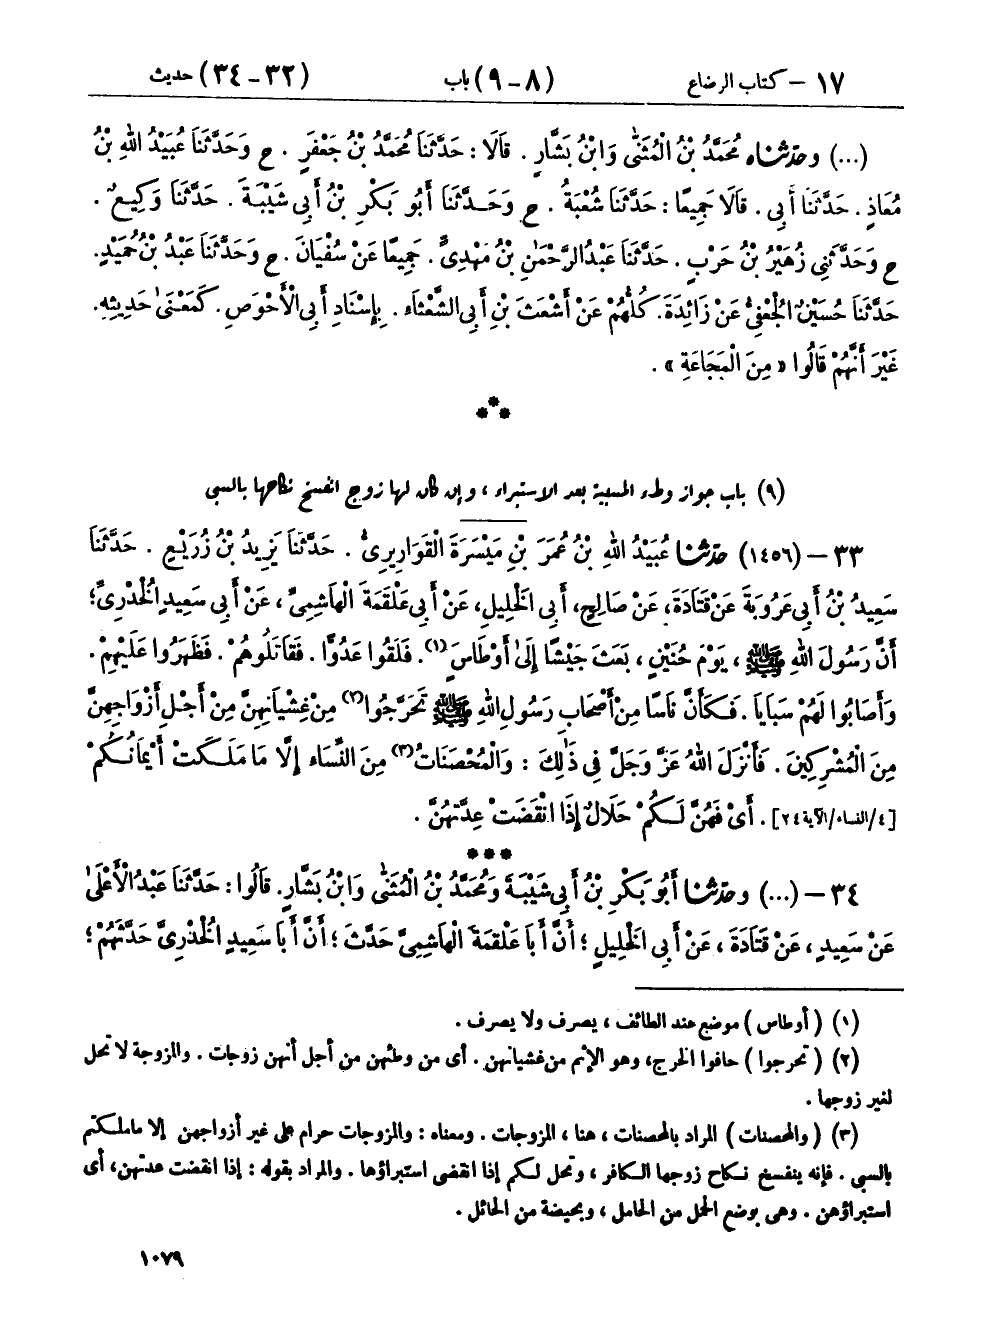 ١٧ – كتاب الرضاع (٨ – ٩) باب (٣٢ – ٣٤) حديث
(...) وحَدَّثَنَاه مُحَمَّدُ بْنُ الْمُثَنَّى وَابْنُ بَشَّارٍ . قَالَا : حَدَّثَنَا مُحَمَّدُ بْنُ جَعْفَرٍ . ح وَحَدَّثَنَا عُبَيْدُ اللهِ بْنُ
مُعَاذٍ . حَدَّثَنَا أَبِي . قَالَا جَمِيعًا : حَدَّثَنَا شُعْبَةُ . ح وَحَدَّثَنَا أَبُو بَكْرِ بْنُ أَبِي شَيْبَةَ . حَدَّثَنَا وَكِيعٌ .
ح وَحَدَّثَنِي زُهَيْرُ بْنُ حَرْبٍ . حَدَّثَنَا عَبْدُ الرَّحْمَٰنِ بْنُ مَهْدِيٍّ . جَمِيعًا عَنْ سُفْيَانَ . ح وَحَدَّثَنَا عَبْدُ بْنُ حُمَيْدٍ .
حَدَّثَنَا حُسَيْنٌ الْجُعْفِيُّ عَنْ زَائِدَةَ . كُلُّهُمْ عَنْ أَشْعَثَ بْنِ أَبِي الشَّعْثَاءِ . بِإِسْنَادِ أَبِي الْأَحْوَصِ . كَمَعْنَىٰ حَدِيثِهِ .
غَيْرَ أَنَّهُمْ قَالُوا « مِنَ الْمَجَاعَةِ » .
***
(٩) باب جواز وطء المسبية بعد الاستبراء ، وإن كان لها زوج انفسخ نكاحها بالسبى
٣٣ – (١٤٥٦) حَدَّثَنَا عُبَيْدُ اللهِ بْنُ عُمَرَ بْنِ مَيْسَرَةَ الْقَوَارِيرِيُّ . حَدَّثَنَا يَزِيدُ بْنُ زُرَيْعٍ . حَدَّثَنَا
سَعِيدُ بْنُ أَبِي عَرُوبَةَ عَنْ قَتَادَةَ ، عَنْ صَالِحٍ ، أَبِي الْخَلِيلِ ، عَنْ أَبِي عَلْقَمَةَ الْهَاشِمِيِّ ، عَنْ أَبِي سَعِيدٍ الْخُدْرِيِّ ؛
أَنَّ رَسُولَ اللهِ ﷺ ، يَوْمَ حُنَيْنٍ ، بَعَثَ جَيْشًا إِلَىٰ أَوْطَاسٍ (١) . فَلَقُوا عَدُوًّا . فَقَاتَلُوهُمْ . فَظَهَرُوا عَلَيْهِمْ .
وَأَصَابُوا لَهُمْ سَبَايَا . فَكَأَنَّ نَاسًا مِنْ أَصْحَابِ رَسُولِ اللهِ ﷺ تَحَرَّجُوا (٢) مِنْ غِشْيَانِهِنَّ مِنْ أَجْلِ أَزْوَاجِهِنَّ
مِنَ الْمُشْرِكِينَ . فَأَنْزَلَ اللهُ عَزَّ وَجَلَّ فِي ذَٰلِكَ : وَالْمُحْصَنَاتُ (٣) مِنَ النِّسَاءِ إِلَّا مَا مَلَكَتْ أَيْمَانُكُمْ
[٤/النساء/الآية ٢٤] . أَىْ فَهُنَّ لَكُمْ حَلَالٌ إِذَا انْقَضَتْ عِدَّتُهُنَّ .
***
٣٤ – (...) وحَدَّثَنَا أَبُو بَكْرِ بْنُ أَبِي شَيْبَةَ وَمُحَمَّدُ بْنُ الْمُثَنَّى وَابْنُ بَشَّارٍ . قَالُوا : حَدَّثَنَا عَبْدُ الْأَعْلَىٰ
عَنْ سَعِيدٍ ، عَنْ قَتَادَةَ ، عَنْ أَبِي الْخَلِيلِ ؛ أَنَّ أَبَا عَلْقَمَةَ الْهَاشِمِيَّ حَدَّثَ ؛ أَنَّ أَبَا سَعِيدٍ الْخُدْرِيَّ حَدَّثَهُمْ ؛
(١) ( أوطاس ) موضع عند الطائف ، يصرف ولا يصرف .
(٢) ( تحرجوا ) خافوا الحرج ، وهو الإثم من غشيانهن . أى من وطئهن من أجل أنهن زوجات . والمزوجة لا تحل
لغير زوجها .
(٣) ( والمحصنات ) المراد بالمحصنات ، هنا ، المزوجات . ومعناه : والمزوجات حرام على غير أزواجهن إلا ما ملكتم
بالسبى . فإنه ينفسخ نكاح زوجها الكافر ، وتحل لكم إذا انقضى استبراؤها . والمراد بقوله : إذا انقضت عدتهن ، أى
استبراؤهن . وهى بوضع الحمل من الحامل ، وبحيضة من الحائل .
١٠٧٩